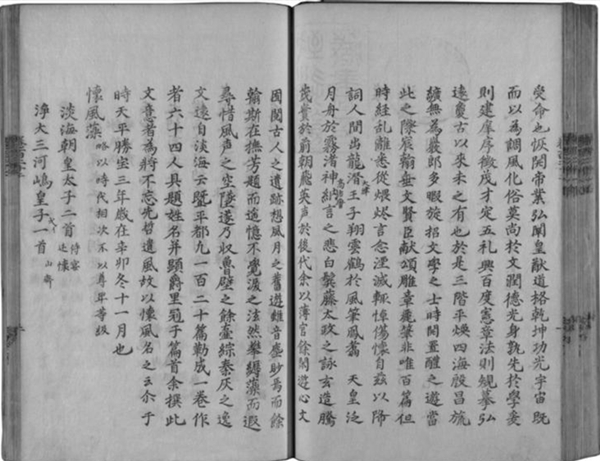 受命也恢開帝業弘闡皇猷道格乾坤功光宇宙既
而以為調風化俗莫尚於文潤德光身孰先於學爰
則建庠序徴茂才定五礼興百度憲章法則規摹弘
遠敻古以来未之有也於是三階平煥四海殷昌旒
纊無為巖廊多暇旋招文學之士時開置醴之遊當
此之際宸翰垂文賢臣献頌雕章麗筆非唯百篇但
時經乱離悉從煨燼言念湮滅軫悼傷懷自茲以降
詞人間出龍潜王子翔雲鶴於風筆鳳翥 天皇泛
大津
月舟於霧渚神納言之悲白鬢藤太政之詠玄造騰
高市麿
茂實於前朝飛英声於後代余以薄官餘閑遊心文
囿閲古人之遺跡想風月之舊遊雖音塵眇焉而餘
翰斯在撫芳題而遥憶不覺涙之泫然攀縟藻而遐
尋惜風声之空墜遂乃収魯壁之餘蠹綜秦灰之逸
文遠自淡海云曁平都凡一百二十篇勒成一卷作
者六十四人具題姓名并顯爵里冠于篇首余撰此
文意者為將不忘先哲遺風故以懷風名之云尓于
時天平勝寶三年歳在辛卯冬十一月也
懷風藻 略以時代相次不以尊卑等級
淡海朝皇太子二首 侍宴 述懷
淨大三河嶋皇子一首 山斎